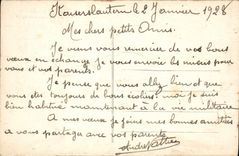 Kaiserslautern le 2 Janvier 1928
Mes chers petits Amis
Je viens vous remercier de vos bons
vœux en échange je vous envoie les miens pour
vous et vos parents.
Je pense que vous allez bien et que
vous êtes toujours de bons écoliers moi je suis
bien habitué maintenant à la vie militaire
A mes vœux je joins mes bonnes amitiés
a vous partager avec vos parents
André